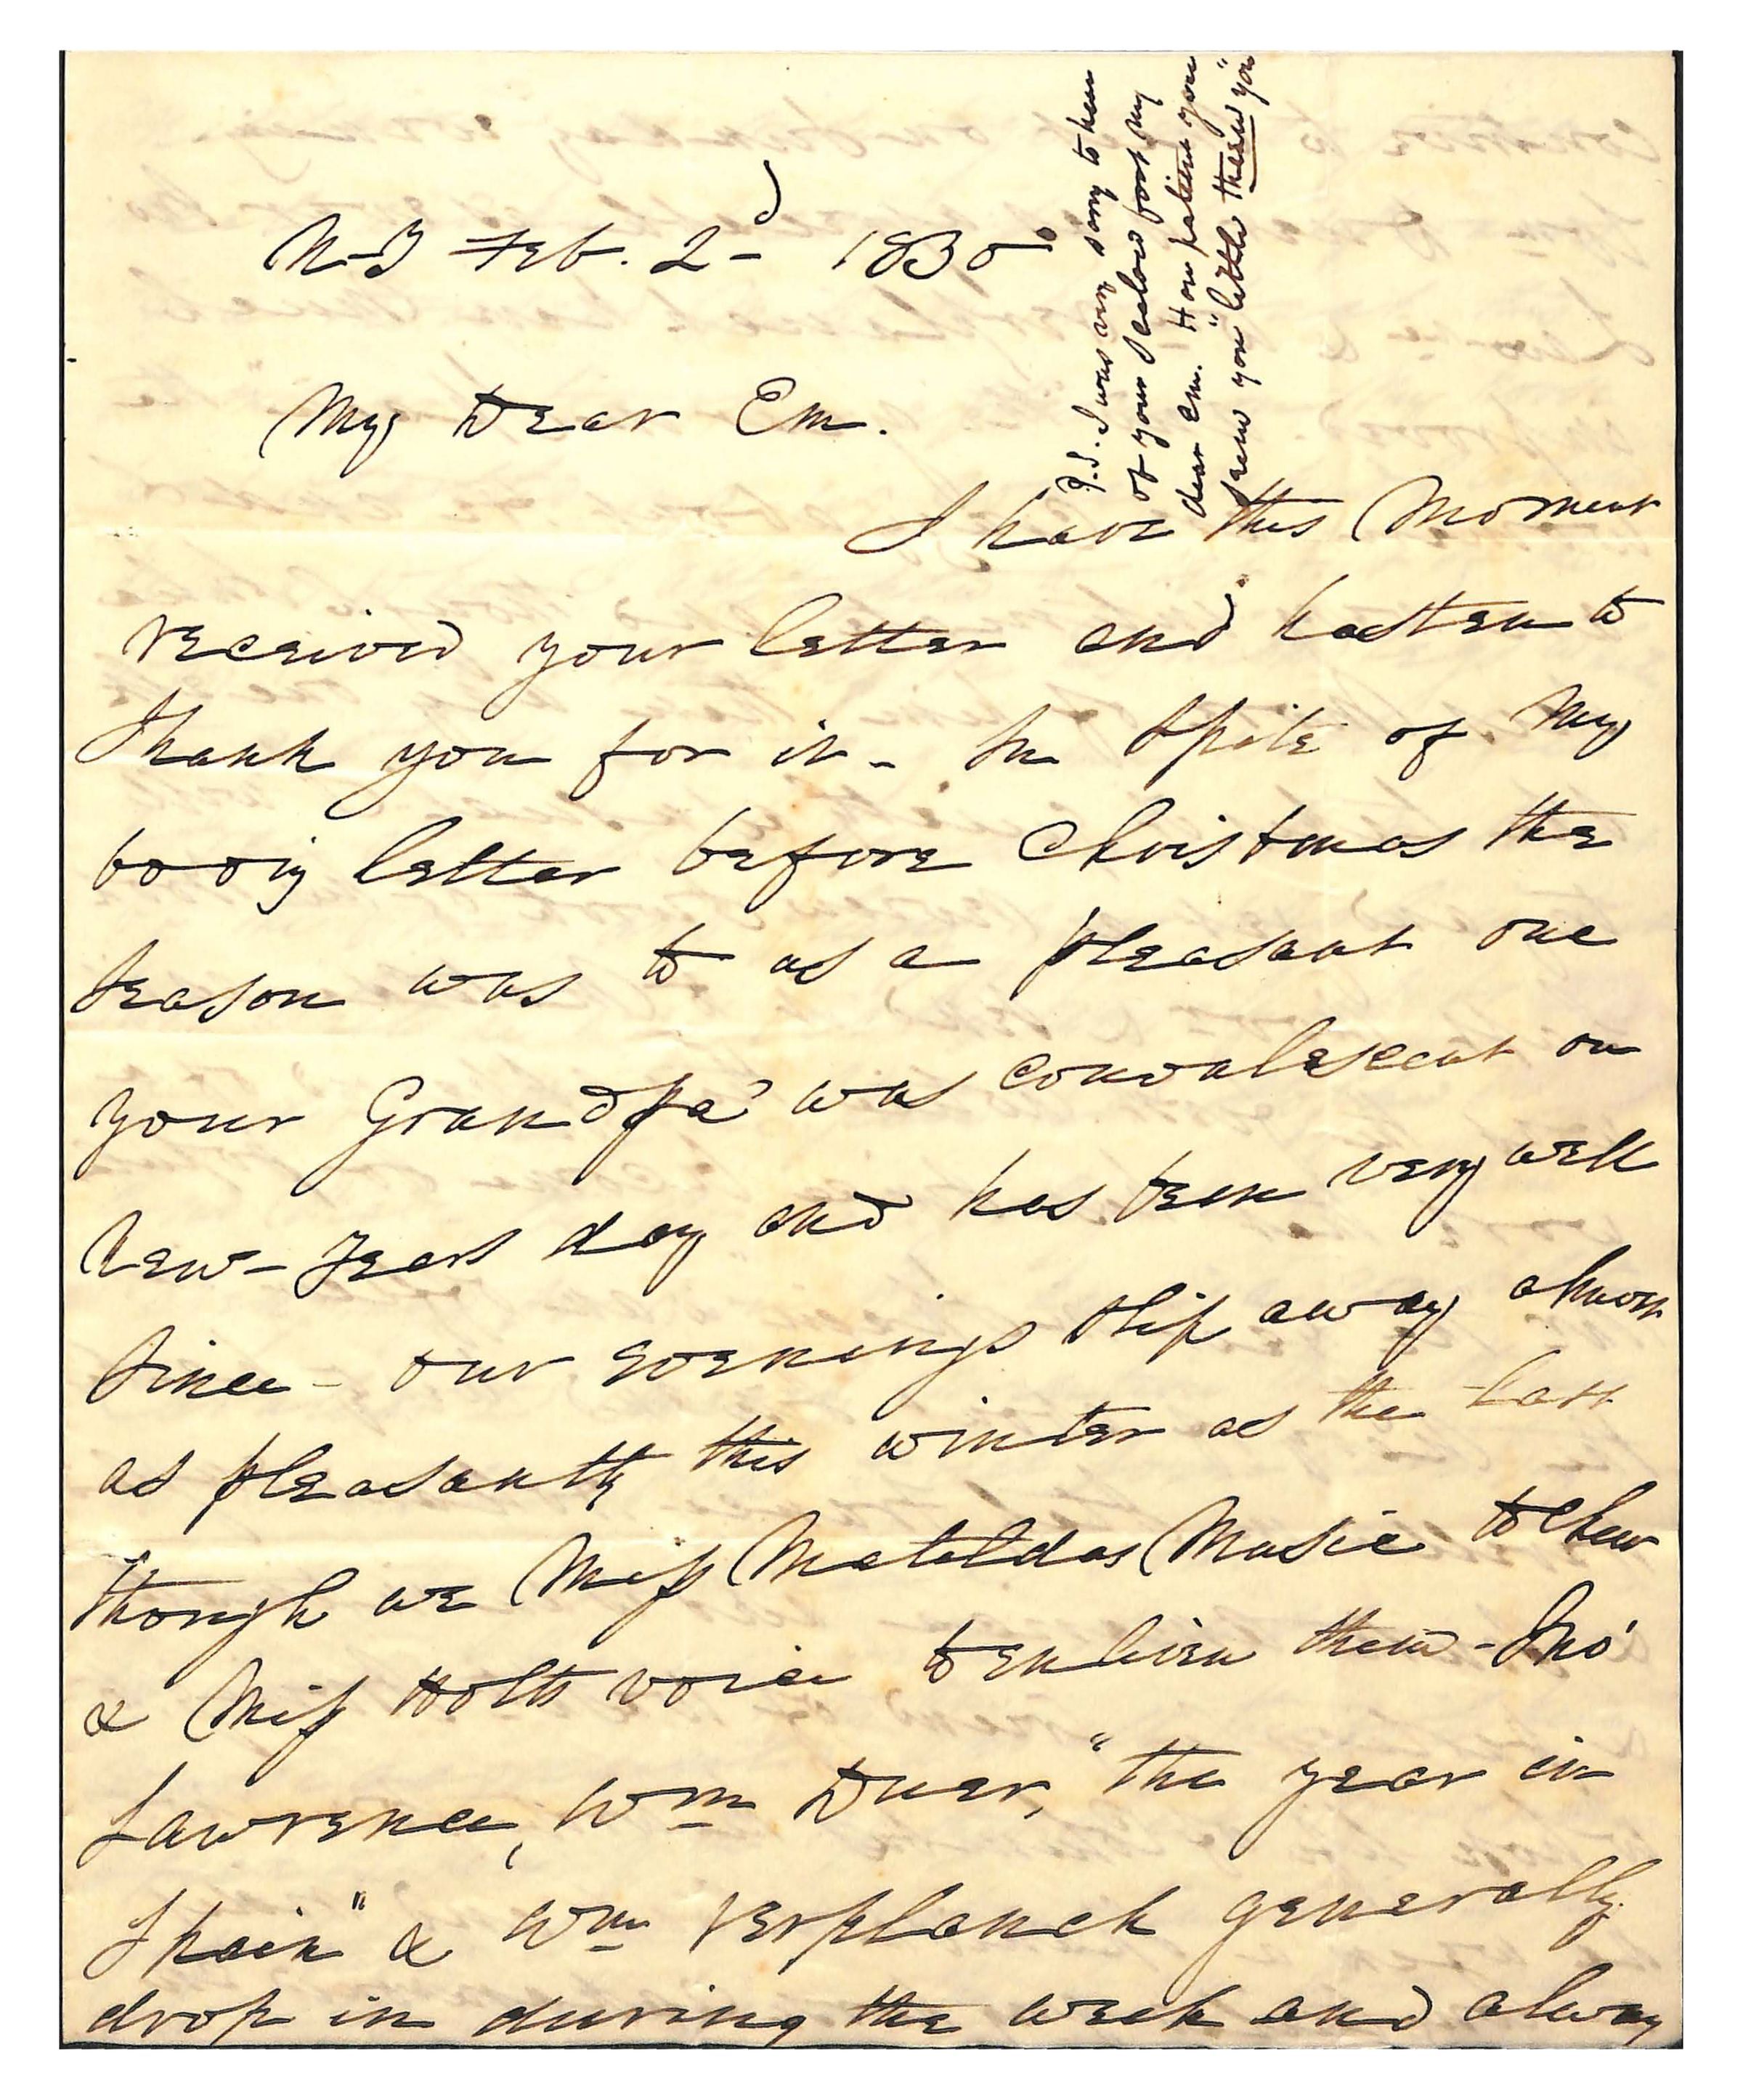 N-Y Feb. 2d 1830
My Dear Em.
I have this Moment
received your letter and hasten to
Thank you for it - In Spite of My
letter before Christmas the
season was to us a pleasant one
your Grandpa' was convalescent on
New-Years day and has been very well
Since - our evenings slip away almost
as pleasantly this winter as the last
though we Miss Matildas Music to chear
& Miss Holts voice to enliven them - Jno'
Lawrence, Wm Duer, "the year in
Spain" & Wm Verplanck generally
drop in during the week and alway
P.S. I was very sorry to hear
of your scalded foot my
dear Em. How patient you
"little" you